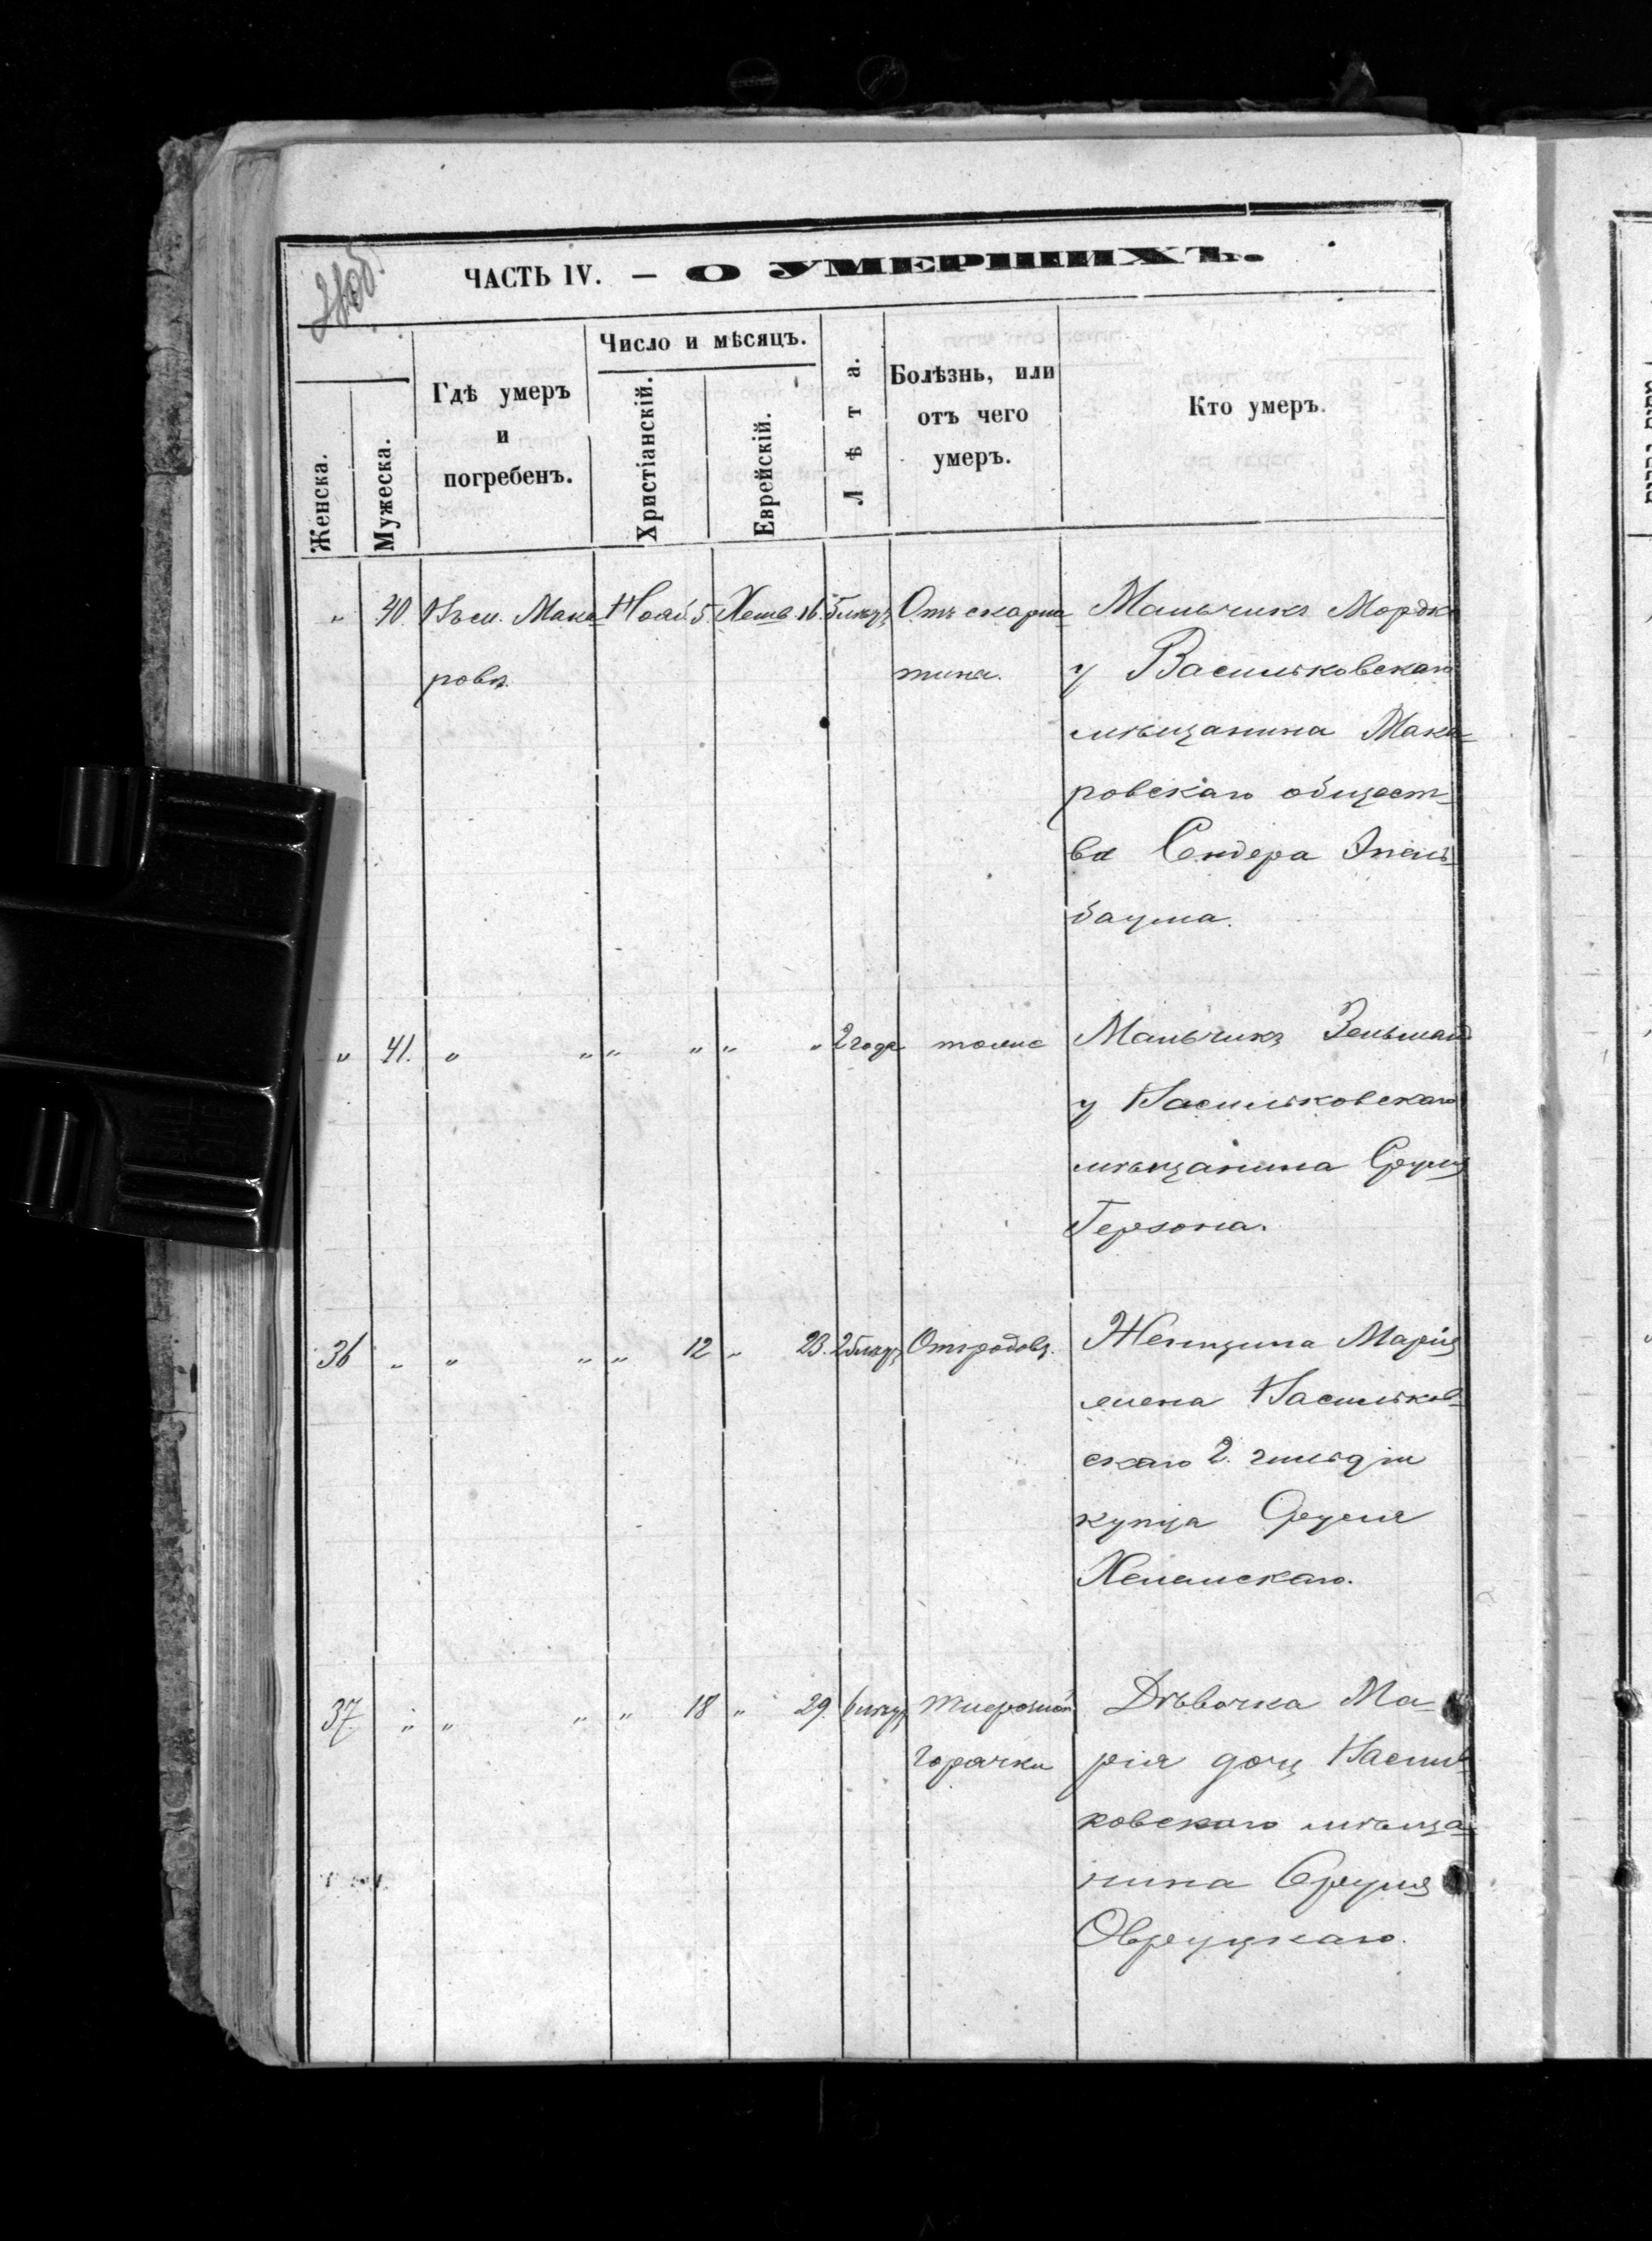 ЧАСТЬ IV. — О УМЕРШИХЪ.
Женска.
Мужеска.
Гдѣ умеръ
и
погребенъ.
Число и мѣсяцъ.
Христіанскій.
Еврейскій.
Лѣта.
Болѣзнь, или
отъ чего
умеръ.
Кто умеръ.
" 40. Въ м. Мака- Нояб. 5. Хешв. 16. 5 лѣтъ Отъ скарла- Мальчикъ Мордко
ровѣ. тина. у Васильковскаго
мѣщанина Мака-
ровскаго общест-
ва Сендера
баума.
" 41. " " " " " " 2 года тоже Мальчикъ Зельманъ
у Васильковскаго
мѣщанина Сруля
Герзона.
36 " " " " 12 " 23. 25 лѣтъ Отъ родовъ. Женщина Марія
жена Васильков-
скаго 2. гильдіи
купца Сруля
37. " " " " 18 " 29. 6 лѣтъ горячки Дѣвочка Ма-
рія дочь Василь-
ковскаго мѣща-
нина Сруля
Овруцкаго.